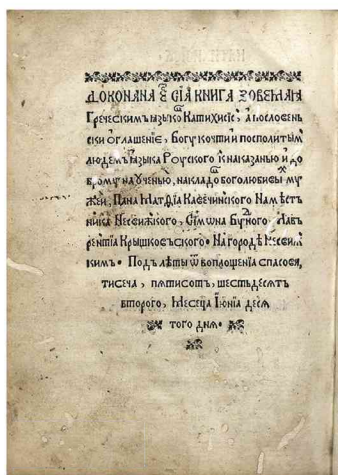 Доконана єсⷮ сіѧ книга зовемаѧ
Греческимъ ꙗзыкоⷨ Катихисіс, апословень
ски оглашеніє, Богу кочти и посполитым
людемъ ꙗзыка Роуского кнаказанью идо
брому научєнью, накладоⷨ боголюбивыⷯ му
жей, Пана Матѳіа Каѳечинского Намѣст
ника Несвижского, Сімѡна Будного, Лавр
рентіа Крышковъского. На городѣ Несвиж
скимъ. Подъ лѣты ѿ воплощеніа спасовѧ,
тисеча, пѧтисотъ, шестьдесѧтъ
второго, Месеца Іюніа десѧ
того днѧ.